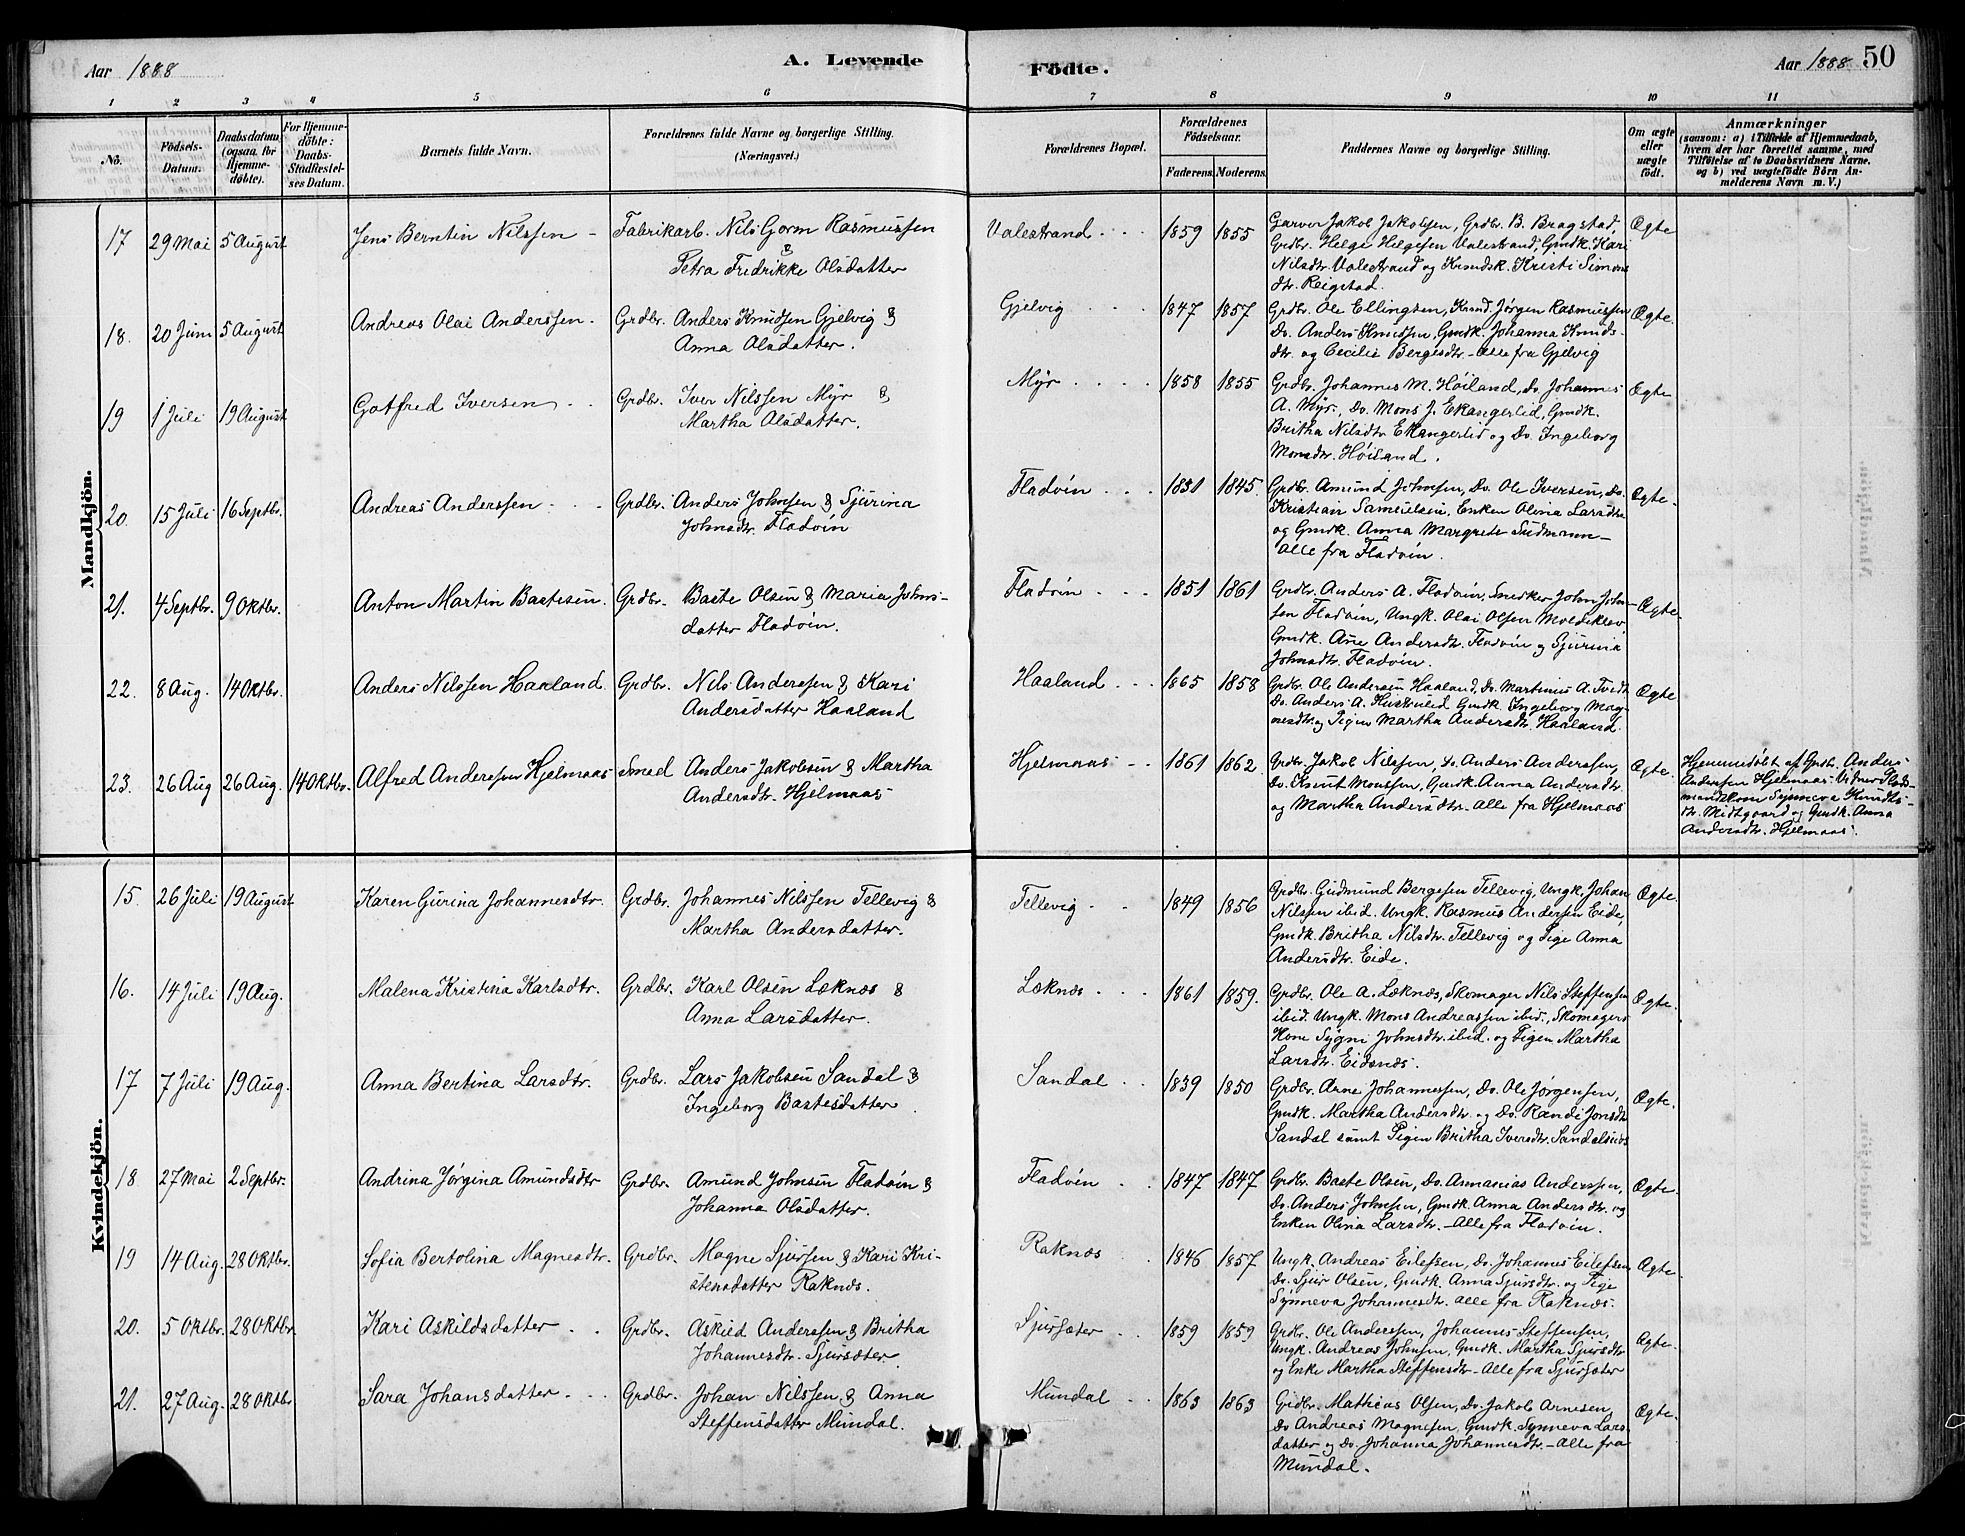 Aar 1888
A. Levende
Födte.
Aar 1888
50
1 2 3 4 5 6 7 8 9 10 11
No.
Födsels-
Datum.
Daabsdatum
(ogsaa for
Hjemme-
döbte).
For Hjemme-
döbte:
Daabs-
Stadfæstel-
ses Datum.
Barnets fulde Navn.
Forældrenes fulde Navne og borgerlige Stilling.
(Næringsvei.)
Forældrenes Bopæl.
Forældrenes
Födselsaar.
Faderens. Moderens.
Faddernes Navne og borgerlige Stilling.
Om ægte
eller
uægte
födt.
Anmærkninger
(saasom: a) i Tilfælde af Hjemmedaab,
hvem der har forrettet samme, med
Tilföielse af to Daabsvidners Navne.
og b) ved uægtefödte Börn An-
melderens Navn m. V.)
Mandkjön.
17 29 Mai 5 August Jens Berntin Nilssen - Fabrikarb. Nils Gorm Rasmussen
&
Petra Fredrikke Olsdatter
Valestrand . . . 1859 1855
Garver Jakob Jakobsen, Grdbr. B. Bragstad,
Grdbr. Helge Helgesen Valestrand, Gmdk. Kari
Nilsdtr. Valestrand og Kmdsk. Kristi Simons
dtr. Reigstad.
Ægte
18. 20 Juni 5 August Andreas Olai Anderssen - Grdbr. Anders Knudsen Gjelvig &
Anna Olsdatter.
Gjelvig . . . 1847 1857
Grdbr. Ole Ellingsen, Kmd. Jørgen Rasmussen
Do. Anders Knudsen, Gmdk. Johanna Knuds-
dtr. og Cecilie Bergesdtr. - Alle fra Gjelvig
Ægte.
19 1 Juli 19 August Gotfred Iversen . . Grdbr. Iver Nilssen Myr &
Martha Olsdatter.
Myr . . . . 1858 1855
Grdbr. Johannes M. Høiland, Do. Johannes
A. Myr., Do. Mons J. Ekangerlid, Gmdk.
Britha Nilsdtr. Ekangerlid og Do. Ingeborg
Monsdtr. Høiland.
Ægte
20. 15 Juli 16 Septbr. Andreas Anderssen . . . Grdbr. Anders Johnsen & Sjurina
Johnsdtr. Fladøin
Fladøin . . . 1851 1845.
Grdbr. Amund Johnsen, Do. Ole Iversen, Do.
Kristian Samuelsen, Enken Olina Larsdtr.
og Gmdk. Anna Margrete Sudmann -
Alle fra Fladøin.
Ægte.
21. 4 Septbr. 9 Oktbr. Anton Martin Bastesen. Grdbr. Baste Olsen & Maria Johns-
datter Fladøin.
Fladøin . . . 1851 1861
Grdbr. Anders A. Fladøin, Snedker John John-
sen Fladøin, Ungk. Olai Olsen Moldeklev
Gmdk. Ane Andersdtr. Fladøin og Sjurina
Johnsdtr. Fladøin.
Ægte.
22. 8 Aug. 14 Oktbr. Anders Nilssen Haaland. Grdbr. Nils Anderssen & Kari
Andersdatter Haaland
Haaland . . . 1865 1858
Grdbr. Ole Andersen Haaland, Do. Martinus A. Tvedt
Do. Anders A. Gmdk. Ingeborg Mog-
nesdtr. og Pigen Martha Andersdtr. Haaland.
Ægte
23. 26 Aug 26 Aug. 14 Oktbr. Alfred Anderssen Hjelmaas Smed Anders Jakobsen & Martha
Andersdtr. Hjelmaas
Hjelmaas - - 1861 1862.
Grdbr. Jakob Nilssen, Do. Anders Anderssen,
Do. Knut Monssen, Gmdk. Anna Andersdtr
og Martha Andersdtr. Alle fra Hjelmaas
Ægte.
Hjemmedøbt af Grdbr. Anders
Andersen Hjelmaas. Vidner
Synneva Knuds-
dtr. Midtgaard og Gmdk. Anna
Andersdtr. Hjelmaas.
Kvindekjön.
15. 26 Juli 19 August Karen Gurina Johannesdtr. Grdbr. Johannes Nilssen Tellevig &
Martha Andersdatter.
Tellevig . . 1849 1856
Grdbr. Gudmund Bergesen Tellevig, Ungk. Johan
Nilssen ibid. Ungk. Rasmus Andersen Eide,
Gmdk. Britha Nilsdtr. Tellevig og Pige Anna
Andersdtr. Eide.
Ægte.
16. 14 Juli 19 Aug. Malena Kristina Karlsdtr. Grdbr. Karl Olsen Læknæs &
Anna Larsdatter.
Læknæs . . . 1861 1859.
Grdbr. Ole A. Læknæs, Skomager Nils Steffensen
ibid. Ungk. Mons Andreassen ibid., Skomagers
Kone Sygni Johnsdtr. ibid. og Pigen Martha
Larsdtr. Eidsnæs.
Ægte.
17 7 Juli 19 Aug. Anna Bertina Larsdtr. Grdbr. Lars Jakobsen Sandal &
Ingeborg Bastesdatter.
Sandal . . 1839 1850
Grdbr. Arne Johannessen, Do. Ole Jørgensen,
Gmdk. Martha Andersdtr. og Do. Randi Jonsdtr
Sandal samt Pigen Britha Iversdtr. Sandalsnæs
Ægte.
18 27 Mai 2 Septbr. Andrina Jørgina Amundsdtr Grdbr. Amund Johnsen Fladøin &
Johanna Olsdatter.
Fladøin . 1847 1847
Grdbr. Baste Olsen, Do. Annanias Anderssen,
Do. Anders Johnsen, Gmdk. Anna Andersdtr. og
Enken Olina Larsdtr. - Alle fra Fladøin.
Ægte.
19 14 Aug. 28 Oktbr. Sofia Bertolina Magnesdtr. Grdbr. Magne Sjursen & Kari Kri-
stensdatter Raknæs.
Raknæs . 1846 1857
Ungk. Andreas Eilefsen, Do. Johannes Eilefsen
Do. Sjur Olsen, Gmdk. Anna Sjursdtr. og Pige
Synneva Johannesdtr. Alle fra Raknæs.
Ægte.
20. 5 Oktbr. 28 Oktbr. Kari Askildsdatter . . Grdbr. Askild Anderssen & Britha
Johannesdtr. Sjursæter.
Sjursæter . . 1859 1859
Grdbr. Ole Anderssen, Johannes Steffensen,
Ungk. Andreas Johnsen, Gmdk. Martha Sjursdtr
og Enke Martha Steffensdtr - Alle fra Sjursæter
Ægte.
21. 27 Aug. 28 Oktbr Sara Johansdatter . . . Grdbr. Johan Nilssen & Anna
Steffensdatter Mundal.
Mundal . . 1863 1863
Grdbr. Mathias Olsen, Do. Jakob Arnesen,
Do. Andreas Magnesen, Gmdk. Synneva Lars
datter og Do. Johanna Johannesdtr. - Alle fra
Mundal.
Ægte.